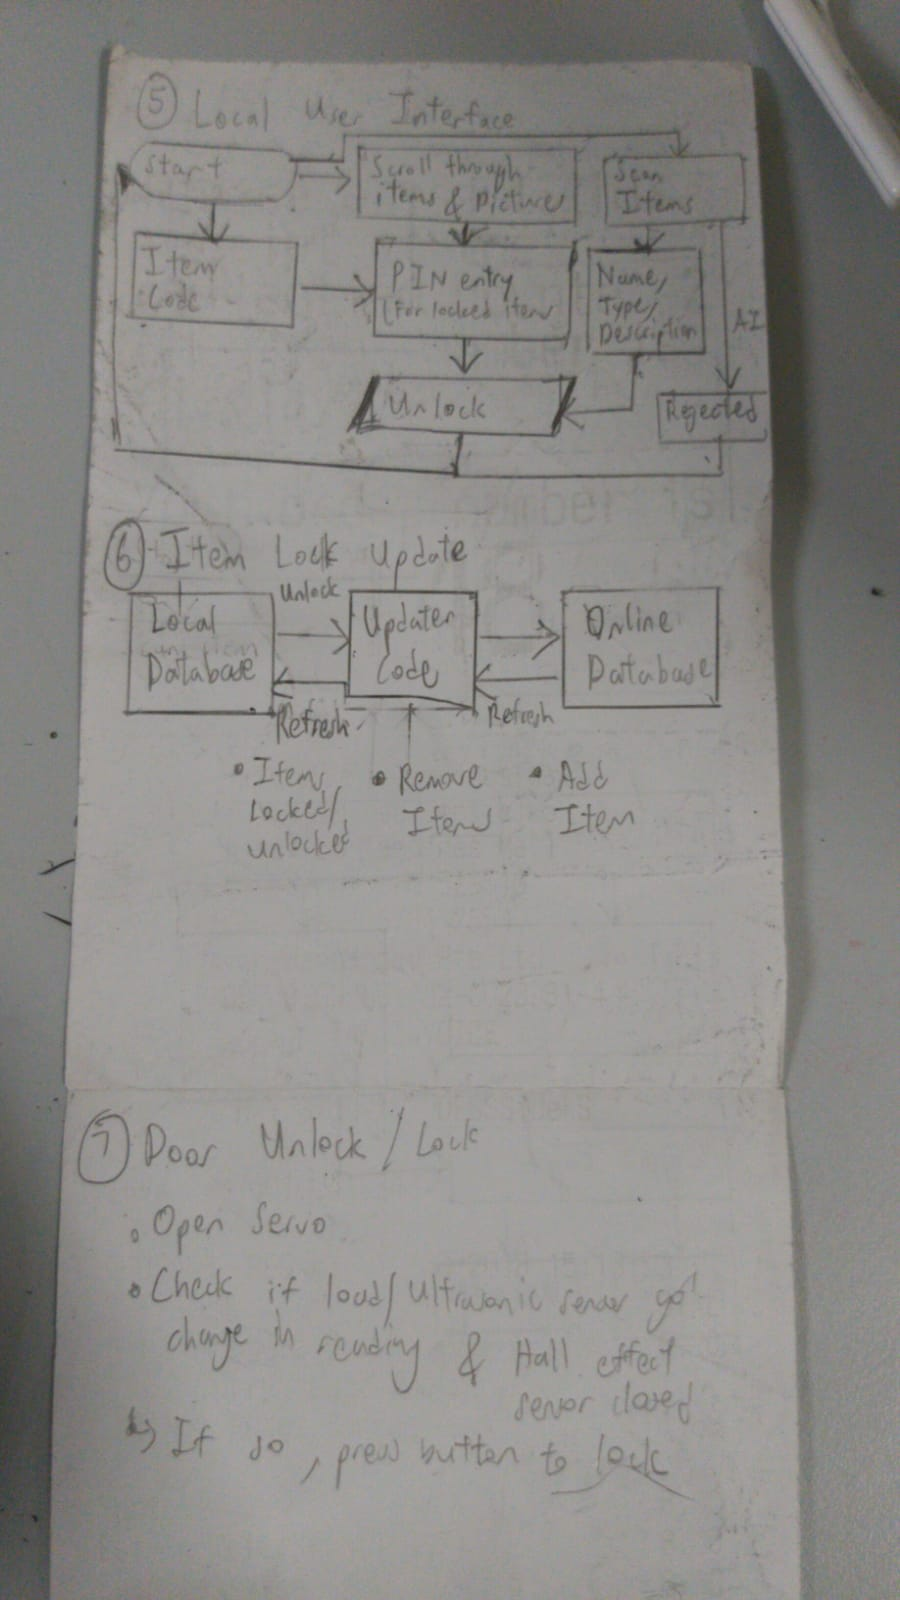 5 Local User Interface
Start
Scroll through
items & pictures
Scan
Items
Item
Code
PIN entry
(For locked items
Name,
Type,
Description
AI
Unlock
Rejected
6 Item Lock Update
Unlock
Local
Database
Updater
Code
Online
Database
Refresh
Refresh
• Items
Locked/
unlocked
• Remove
Items
• Add
Item
7 Door Unlock / Lock
• Open Servo
• Check if load/Ultrasonic sensor got
change in reading & Hall effect
sensor closed
↳ If so, press button to lock